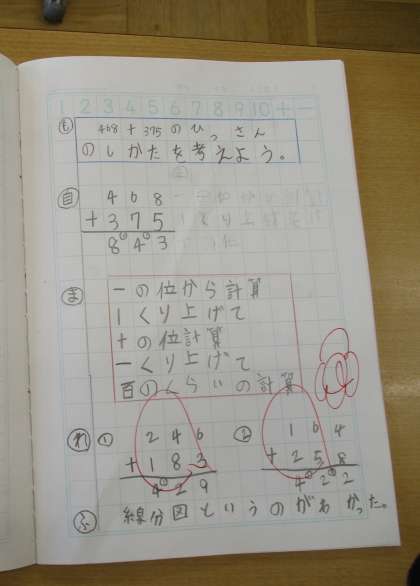 1 2 3 4 5 6 7 8 9 10 + −
も 468+375のひっさん
のしかたを考えよう。
自 468
+375
843
ま 一の位から計算
1くり上げて
十の位計算
一くり上げて
百のくらいの計算
れ ① 246
+183
429
② 164
+258
422
ふ 線分図というのがわかった。